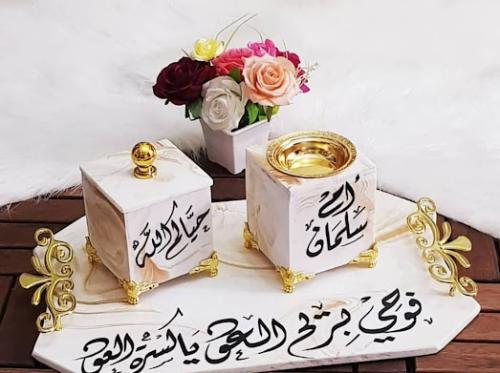 حياكم الله
ام
سلمان
فوحي بريح العود يا كسرة العود